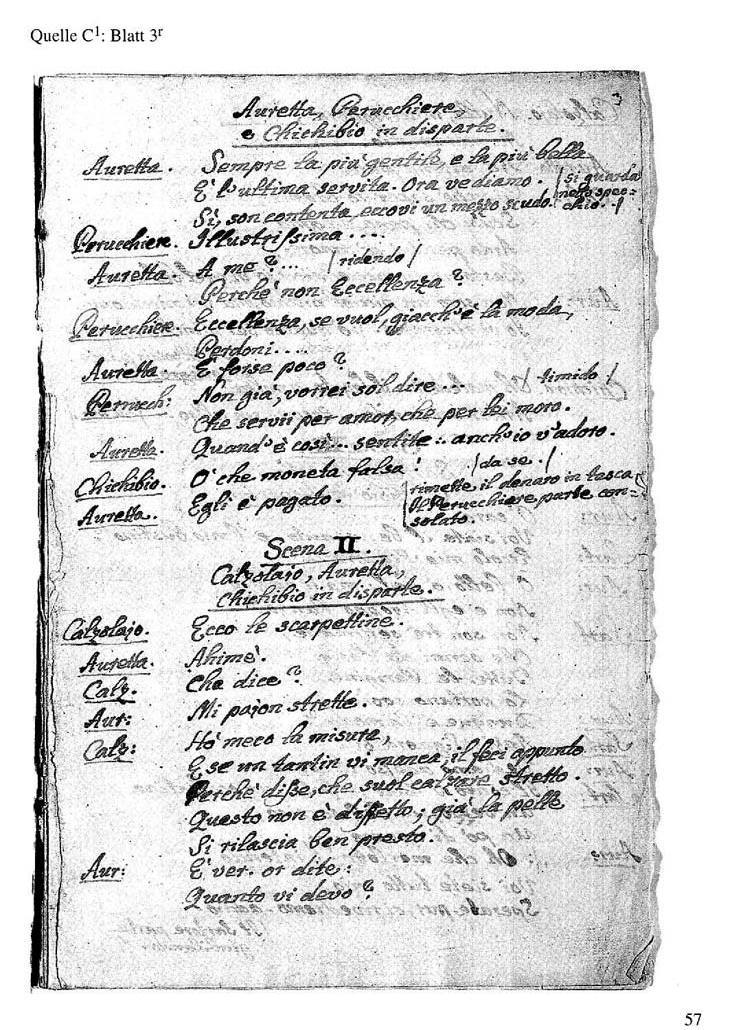 Quelle C¹: Blatt 3ʳ
3
Auretta, Perucchiere,
e Chichibio in disparte.
Auretta. Sempre la più gentile, e la più bella
È l'ultima servita. Ora vediamo. /si guarda
nello spec=
Sì, son contenta, eccovi un mezzo scudo. chio./
Perucchiere. Illustrissima ....
Auretta. A me?... /ridendo/
Perchè non Eccellenza?
Perucchiere. Eccellenza, se vuol, giacch'è la moda,
Perdoni....
Auretta. È forse poco?
Perrucch: Non già, vorrei sol dire... /timido/
Che servii per amor, che per lei moro.
Auretta. Quand'è così... sentite.. anch'io v'adoro.
Chichibio. O che moneta falsa! /da se./
Auretta. Egli è pagato. /rimette il denaro in tasca
Il Perucchiere parte con=
solato.
Scena II.
Calzolaio, Auretta,
Chichibio in disparte.
Calzolajo. Ecco le scarpettine.
Auretta. Ahimè.
Calz. Che dice?
Aur: Mi pajon strette.
Calz: Hò meco la misura,
E se un tantin vi manca, il feci appunto
Perchè disse, che suol calzare stretto.
Questo non è diffetto; già la pelle
Si rilascia ben presto.
Aur: È ver. or dite:
Quanto vi devo?
57